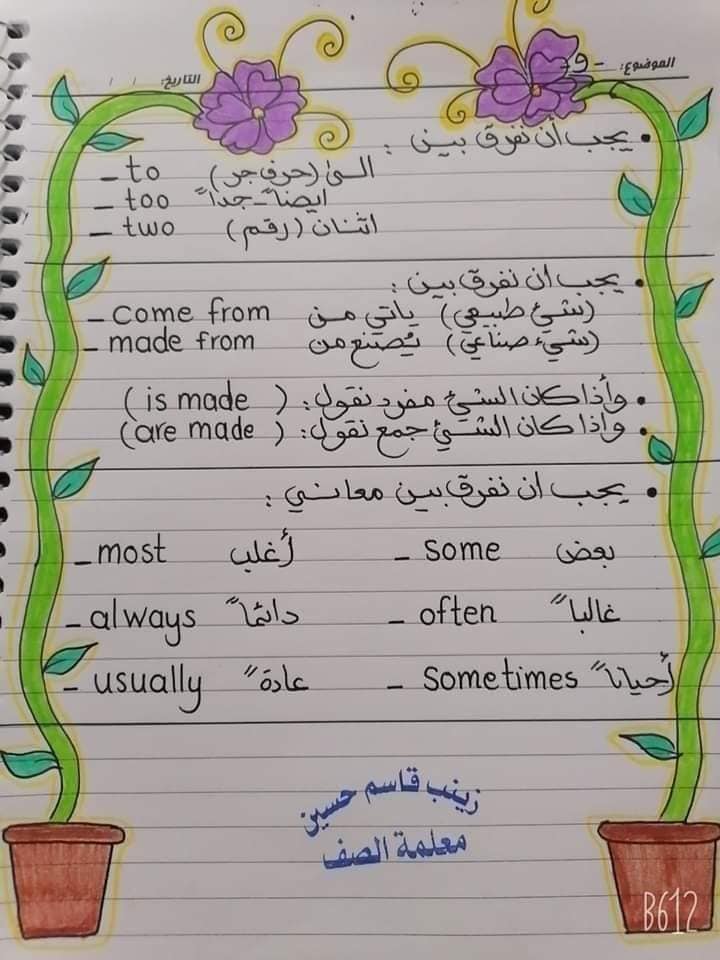 الموضوع: -9-
التاريخ: / /
• يجب أن نفرق بين :
– to الىٰ (حرف جر)
– too ايضاً - جداً
– two اثنان (رقم)
• يجب ان نفرق بين :
– come from ياتي من (شيئ طبيعي)
– made from يُصنع من (شيء صناعي)
• وأذا كان الشيئ مفرد نقول : ( is made )
• وإذا كان الشيئ جمع نقول : ( are made )
• يجب ان نفرق بين معاني :
– most أغلب – some بعض
– always دائماً – often غالباً
– usually عادةً – Sometimes أحياناً
زينب قاسم حسين
معلمة الصف
B612